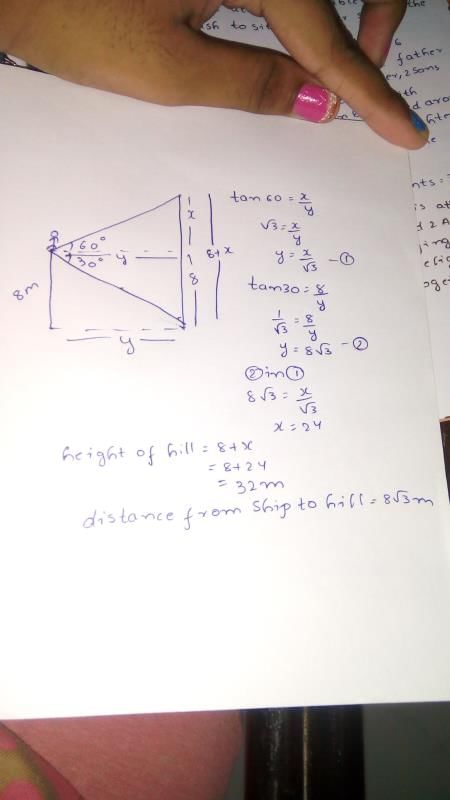 sh to si
the
6
father
er, 2 sons
th
d aro
hte
nts:
is at
d 2 A
jing
oge
60°
30°
y
x
8
8+x
8m
y
tan 60 = x/y
√3 = x/y
y = x/√3 - ①
tan 30 = 8/y
1/√3 = 8/y
y = 8√3 - ②
② in ①
8√3 = x/√3
x = 24
height of hill = 8+x
= 8+24
= 32m
distance from ship to hill = 8√3 m